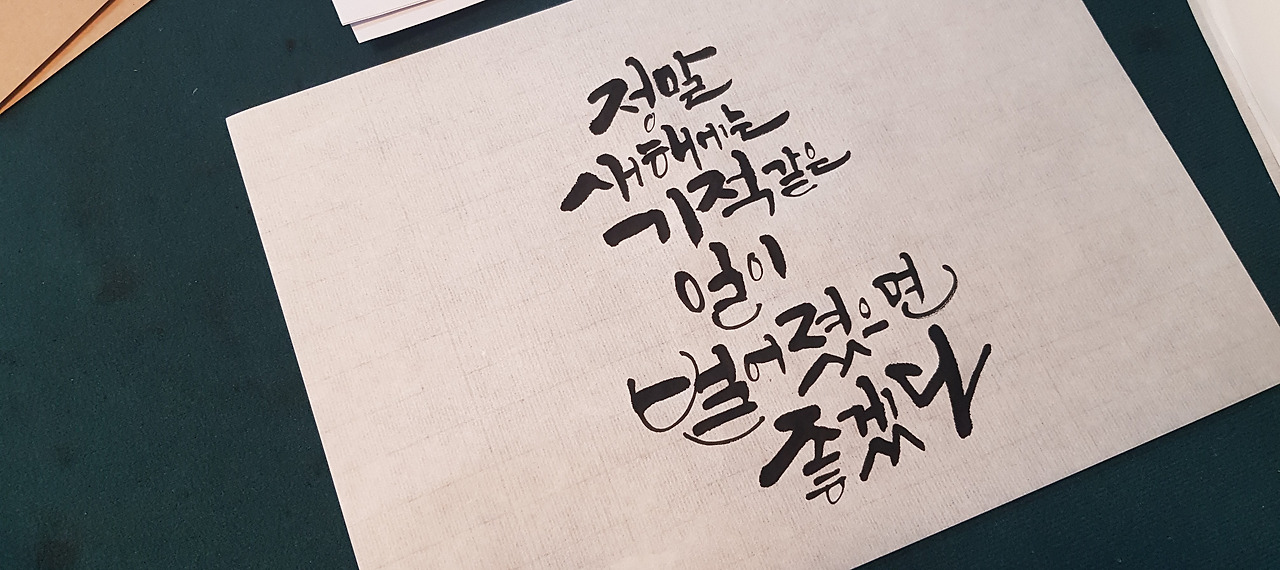 정말
새해에는
기적같은
일이
벌어졌으면
좋겠다